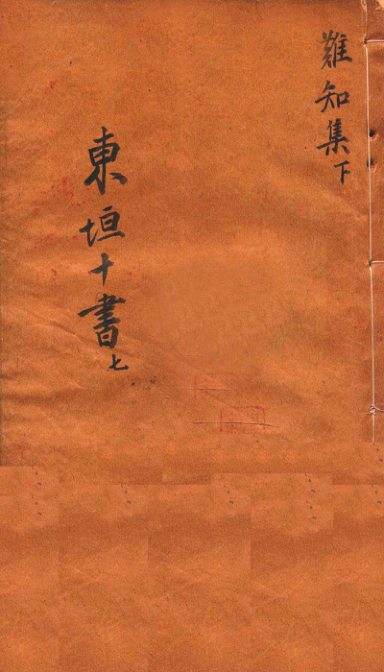 難知集下
東垣十書七